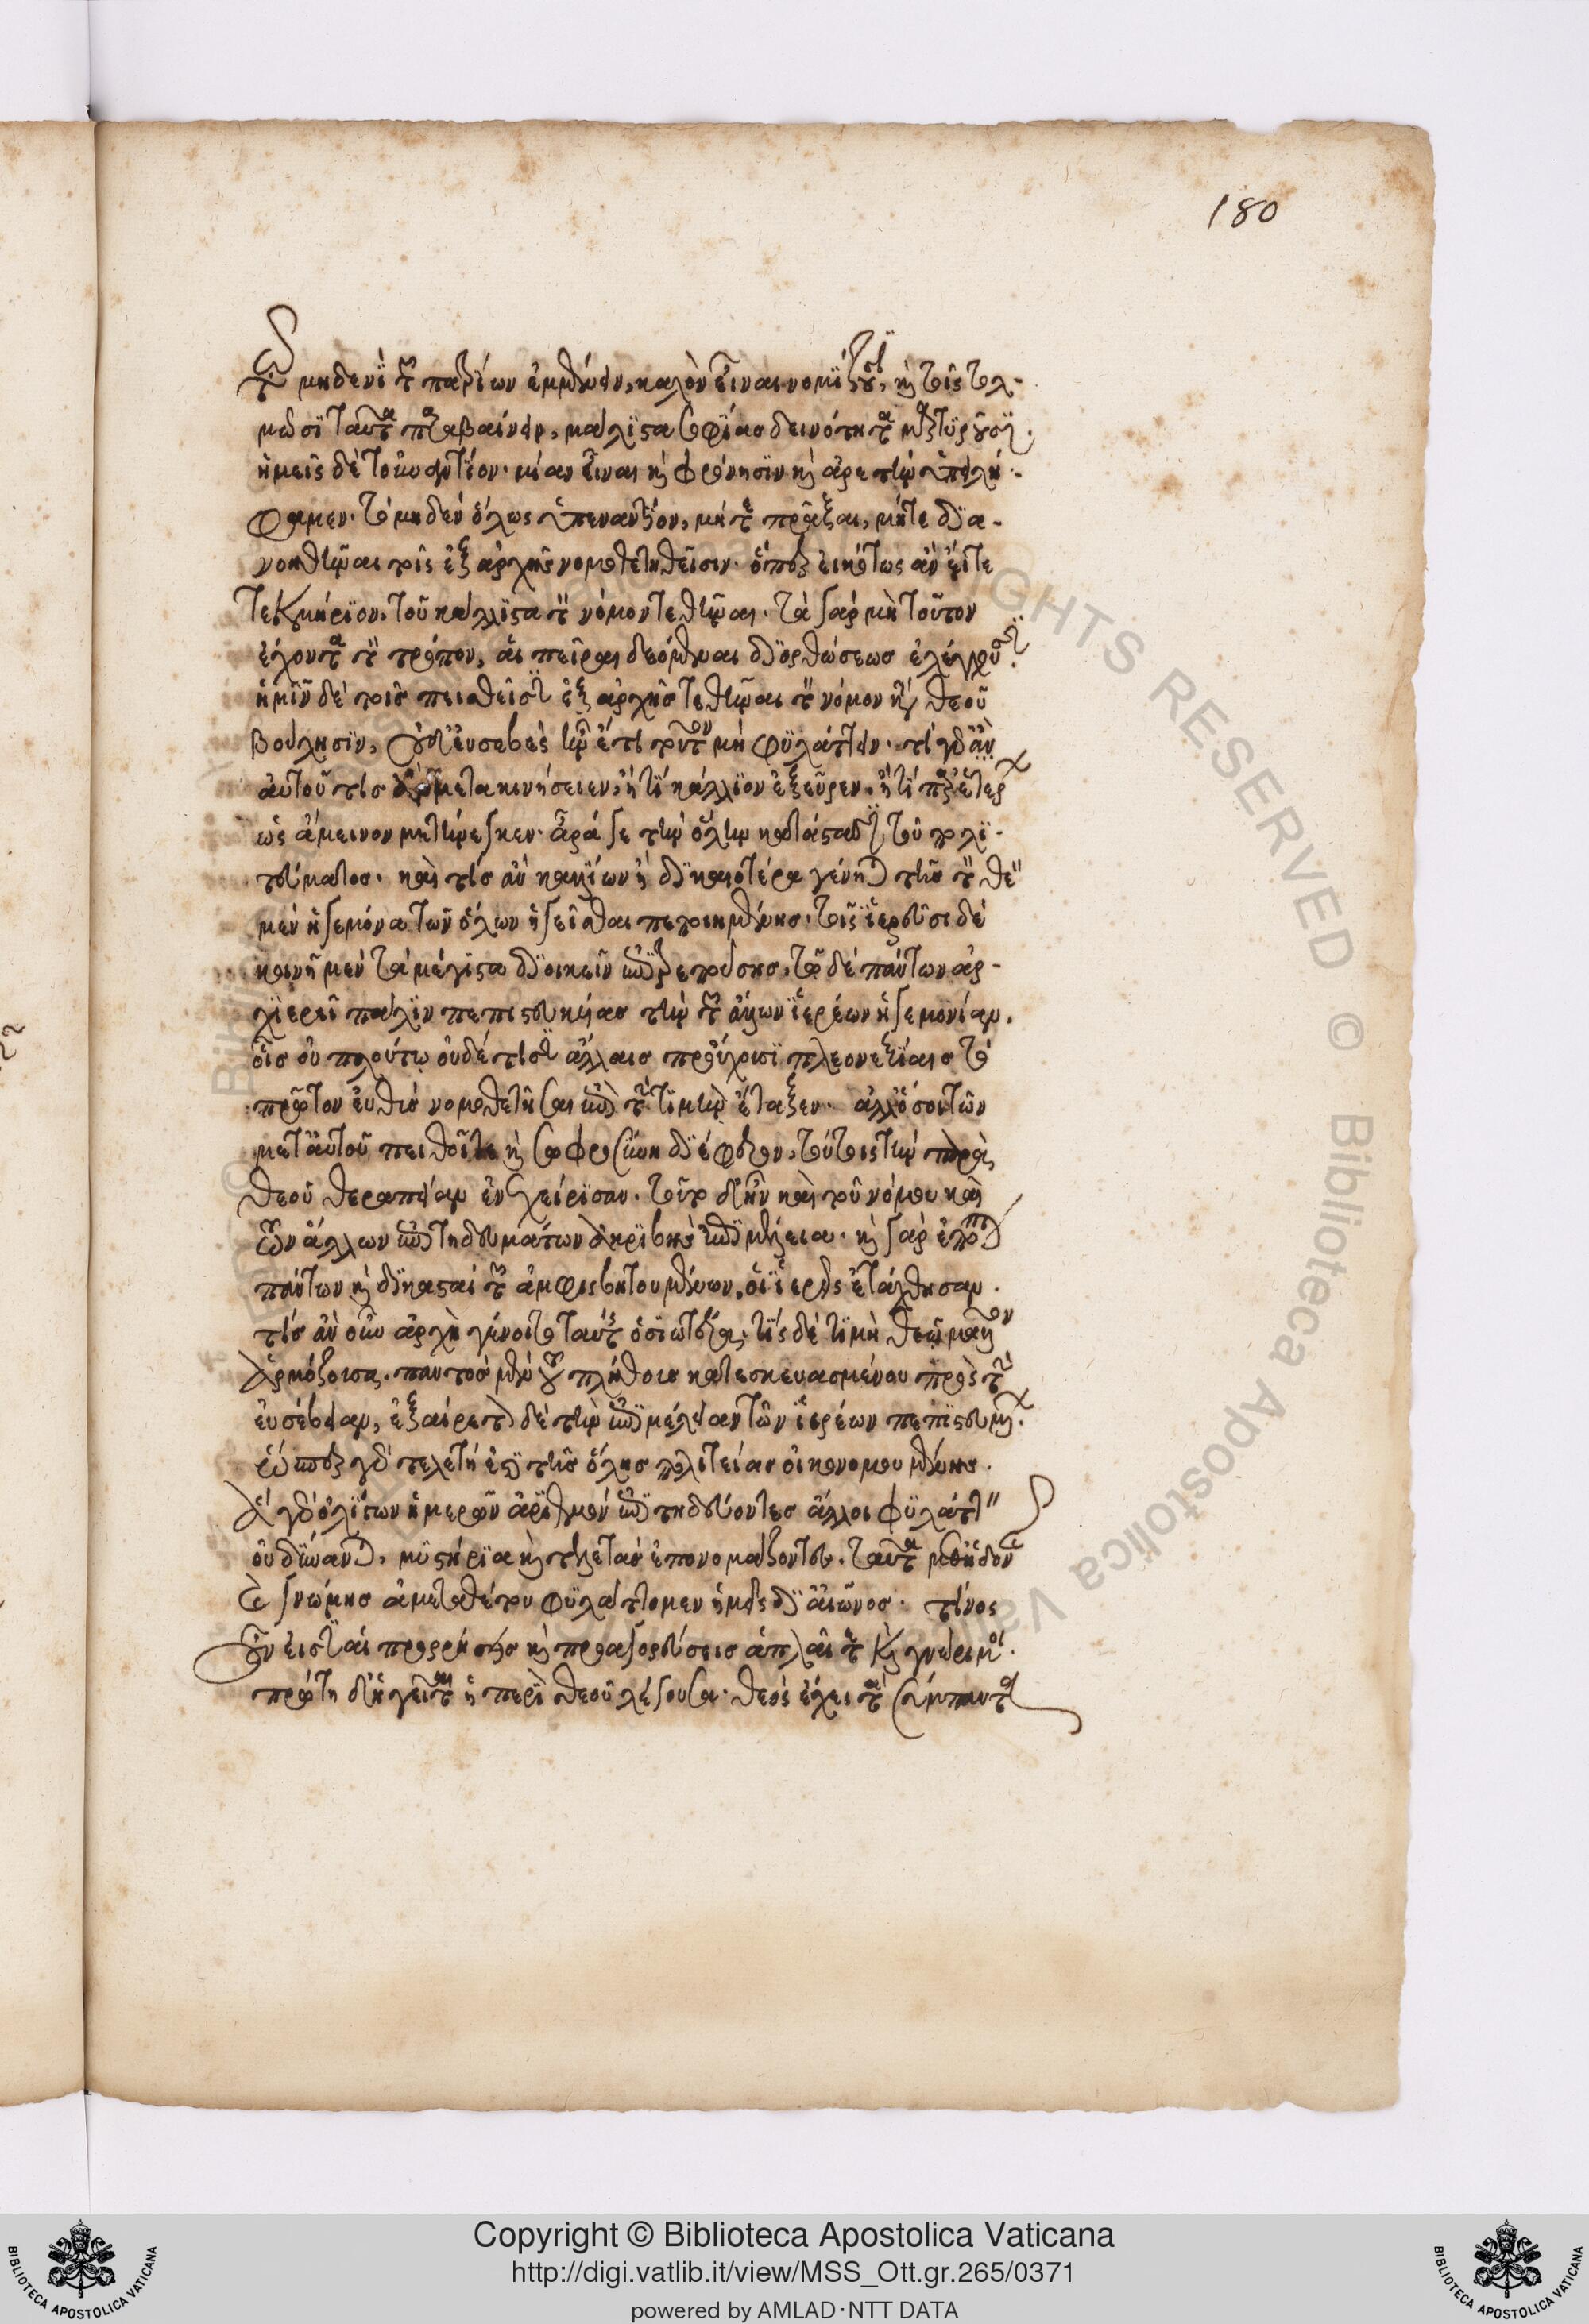 180
τῶ μηδενὶ τῶν πατρίων ἐμμένειν, καλὸν εἶναι νομίζουσι, καὶ τοῖς τολ-
μῶσι ταῦτα παραβαίνειν, μάλιστα σοφίας δεινότητα μαρτυροῦσι.
ἡμεῖς δὲ τοὐναντίον. μίαν εἶναι καὶ φρόνησιν καὶ ἀρετὴν ὑπειλή-
φαμεν. τὸ μηδὲν ὅλως ὑπεναντίον, μήτε πρᾶξαι, μήτε δια-
νοηθῆναι τοῖς ἐξ ἀρχῆς νομοθετηθεῖσιν. ὅπερ εἰκότως ἂν εἴη τε
τεκμήριον, τοῦ κάλλιστα τὸν νόμον τεθῆναι. τὰ γὰρ μὴ τοῦτον
ἔχοντα τὸν τρόπον, αἱ πεῖραι δεόμεναι διορθώσεως ἐλέγχουσι.
ἡμῖν δὲ τοῖς πεισθεῖσιν ἐξ ἀρχῆς τεθῆναι τὸν νόμον κατὰ θεοῦ
βούλησιν, οὐδ' εὐσεβὲς ἦν ἔτι τοῦτον μὴ φυλάττειν. τί γὰρ ἂν
αὐτοῦ τίς μετακινήσειεν, ἢ τί κάλλιον ἐξεῦρεν, ἢ τί παρ' ἑτέρων
ὡς ἄμεινον μετήνεγκεν. ἆρά γε τὴν ὅλην κατάστασιν τοῦ πολι-
τεύματος. καὶ τίς ἂν καλλίων ἢ δικαιοτέρα γένηται τῆς τὸν θεὸν
μὲν ἡγεμόνα τῶν ὅλων ἡγεῖσθαι πεποιημένης. τοῖς ἱερεῦσι δὲ
κοινῇ μὲν τὰ μέγιστα διοικεῖν ἐπιτρεπούσης, τῷ δὲ πάντων ἀρ-
χιερεῖ πάλιν πεπιστευκυίας τὴν τῶν ἄλλων ἱερέων ἡγεμονίαν.
οἷς οὐ πλούτῳ οὐδέ τισιν ἄλλαις προύχουσι πλεονεξίαις τὸ
πρῶτον εὐθὺς νομοθετήσαι ἐπὶ τὴν τιμὴν ἔταξεν. ἀλλ' ὅσοι τῶν
μετ' αὐτοῦ πειθοῖ τε καὶ σωφροσύνῃ διέφερον, τούτοις τὴν περὶ
θεοῦ θεραπείαν ἐνεχείρισαν. τοῦτο δ' ἦν καὶ τοῦ νόμου καὶ
τῶν ἄλλων ἐπιτηδευμάτων ἀκριβὴς ἐπιμέλεια. καὶ γὰρ ἐπόπται
πάντων καὶ δικασταὶ τῶν ἀμφισβητουμένων, οἱ ἱερεῖς ἐτάχθησαν.
τίς ἂν οὖν ἀρχὴ γένοιτο ταύτης ὁσιωτέρα, τίς δὲ τιμὴ θεῷ μᾶλλον
ἁρμόζουσα. παντὸς μὲν τοῦ πλήθους κατεσκευασμένου πρὸς τὴν
εὐσέβειαν, ἐξαίρετον δὲ τὴν ἐπιμέλειαν τῶν ἱερέων πεπιστευμένων.
ὥσπερ δὲ τελετῆς τινος τῆς ὅλης πολιτείας οἰκονομουμένης.
ἃ γὰρ ὀλίγων ἡμερῶν ἀριθμὸν ἐπιτηδεύοντες ἄλλοι φυλάττειν
οὐ δύνανται, μυστήρια καὶ τελετὰς ἐπονομάζοντες. ταῦτα μεθ' ἡδονῆς
καὶ γνώμης ἀμεταθέτου φυλάττομεν ἡμεῖς δι' αἰῶνος. τίνες
οὖν εἰσιν αἱ προρρήσεις καὶ προαγορεύσεις ἁπλαῖ τε καὶ γνώριμοι.
πρώτη δ' ἡγεῖται ἡ περὶ θεοῦ λέγουσα. θεὸς ἔχει τὰ σύμπαντα
Copyright © Biblioteca Apostolica Vaticana
http://digi.vatlib.it/view/MSS_Ott.gr.265/0371
powered by AMLAD·NTT DATA